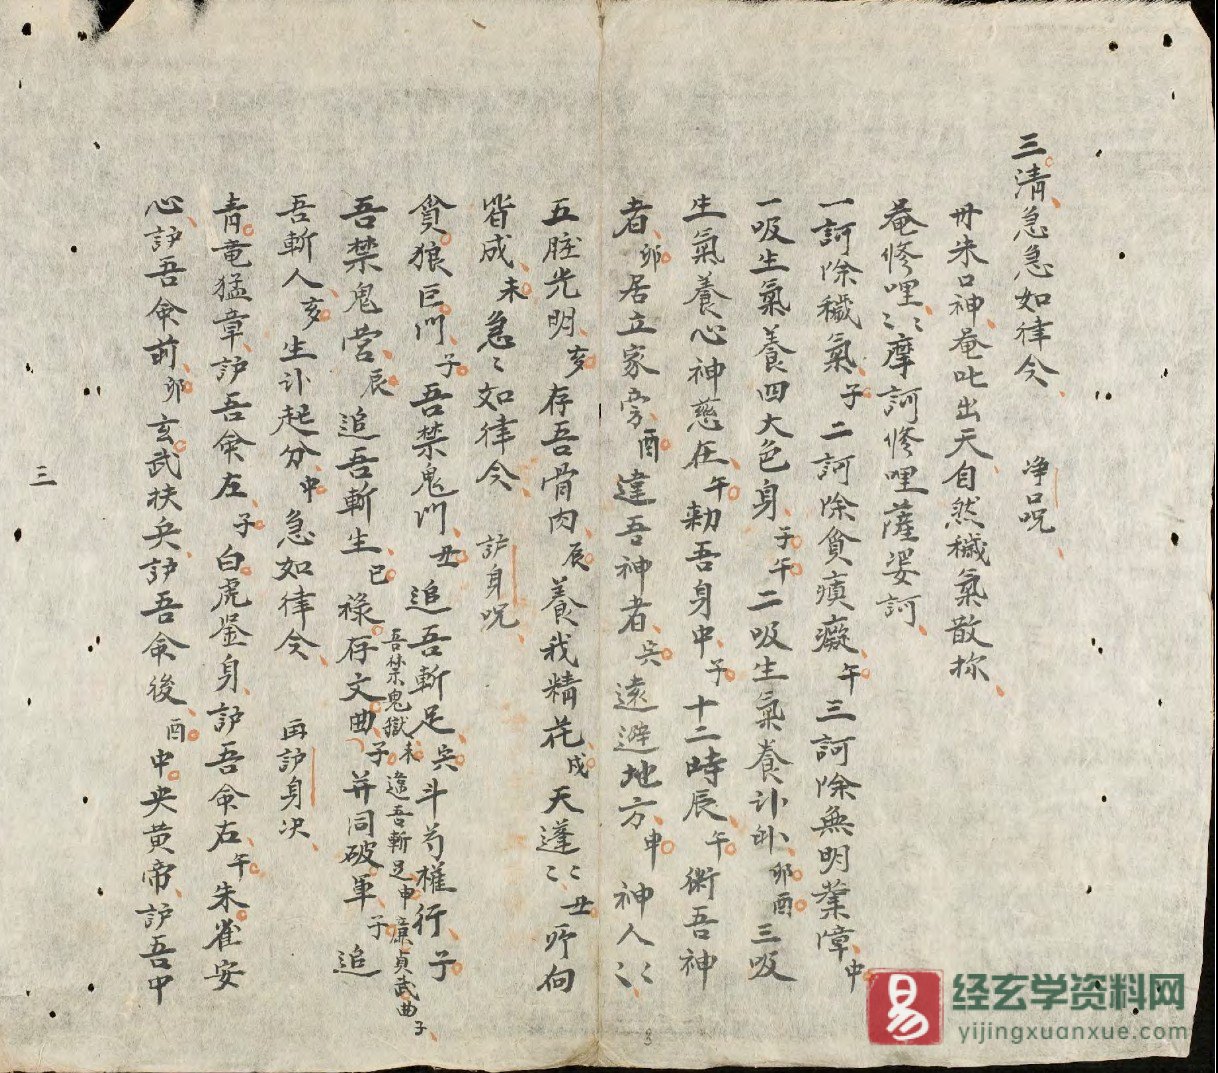 三清急急如律令 净口呪
丹朱口神菴叱出天自然穢氣散拆
菴修哩〻摩訶修哩薩娑訶
一訶除穢氣子二訶除貪瘨癡午三訶除無明業障中
一吸生氣養四大色身子午二吸生氣養卟卧卯酉三吸
生氣養心神慈在午勑吾身中子十二時辰午衛吾神
者卯居立家旁酉違吾神者㕦遠避地方申神人〻
五脏光明亥存吾骨肉辰養我精花戌天蓬〻丑所向
皆成未急〻如律令 護身呪
貪狼巨门子吾禁鬼门丑追吾斬足㕦斗芍權行子
吾禁鬼獄未違吾斬足申廉貞武曲子
吾禁鬼营辰追吾斬生巳禄存文曲子并同破軍子追
吾斬人亥生卟起分中急如律令 再護身决
青竜猛章护吾命左子白虎鉴身护吾命右午朱雀安
心护吾命前卯玄武扶兵护吾命後酉中央黄帝护吾中
三
3
易
经玄学资料网
yijingxuanxue.com